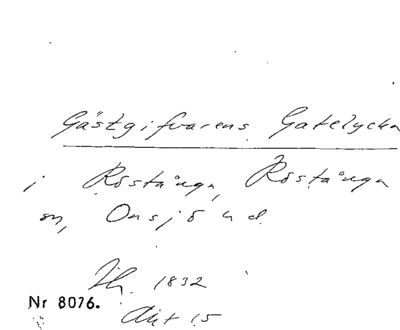 Gästgifvarens Gatelycka
i Röstånga, Röstånga
sn, Onsjö hd.
Jh. 1832
Nr 8076.
Akt 15